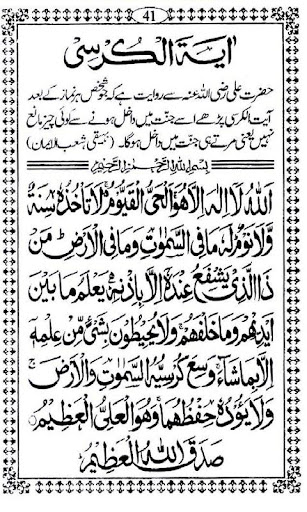 41
آیة الکرسی
حضرت علی رضی اللہ عنہ سے روایت ہے کہ جو شخص ہر نماز کے بعد
آیت الکرسی پڑھے اسے جنت میں داخل ہونے سے کوئی چیز مانع
نہیں یعنی مرتے ہی جنت میں داخل ہوگا۔ (بیہقی شعب الایمان)
بسم الله الرحمن الرحيم
اَللهُ لَآ اِلٰهَ اِلَّا هُوَ اَلْحَىُّ الْقَيُّوْمُ لَا تَاْخُذُهٗ سِنَةٌ
وَّلَا نَوْمٌ لَهٗ مَا فِى السَّمٰوٰتِ وَمَا فِى الْاَرْضِ مَنْ
ذَا الَّذِىْ يَشْفَعُ عِنْدَهٗٓ اِلَّا بِاِذْنِهٖ يَعْلَمُ مَا بَيْنَ
اَيْدِيْهِمْ وَمَا خَلْفَهُمْ وَلَا يُحِيْطُوْنَ بِشَىْءٍ مِّنْ عِلْمِهٖٓ
اِلَّا بِمَا شَآءَ وَسِعَ كُرْسِيُّهُ السَّمٰوٰتِ وَالْاَرْضَ
وَلَا يَـُٔوْدُهٗ حِفْظُهُمَا وَهُوَ الْعَلِىُّ الْعَظِيْمُ
صَدَقَ اللهُ الْعَظِيْمُ